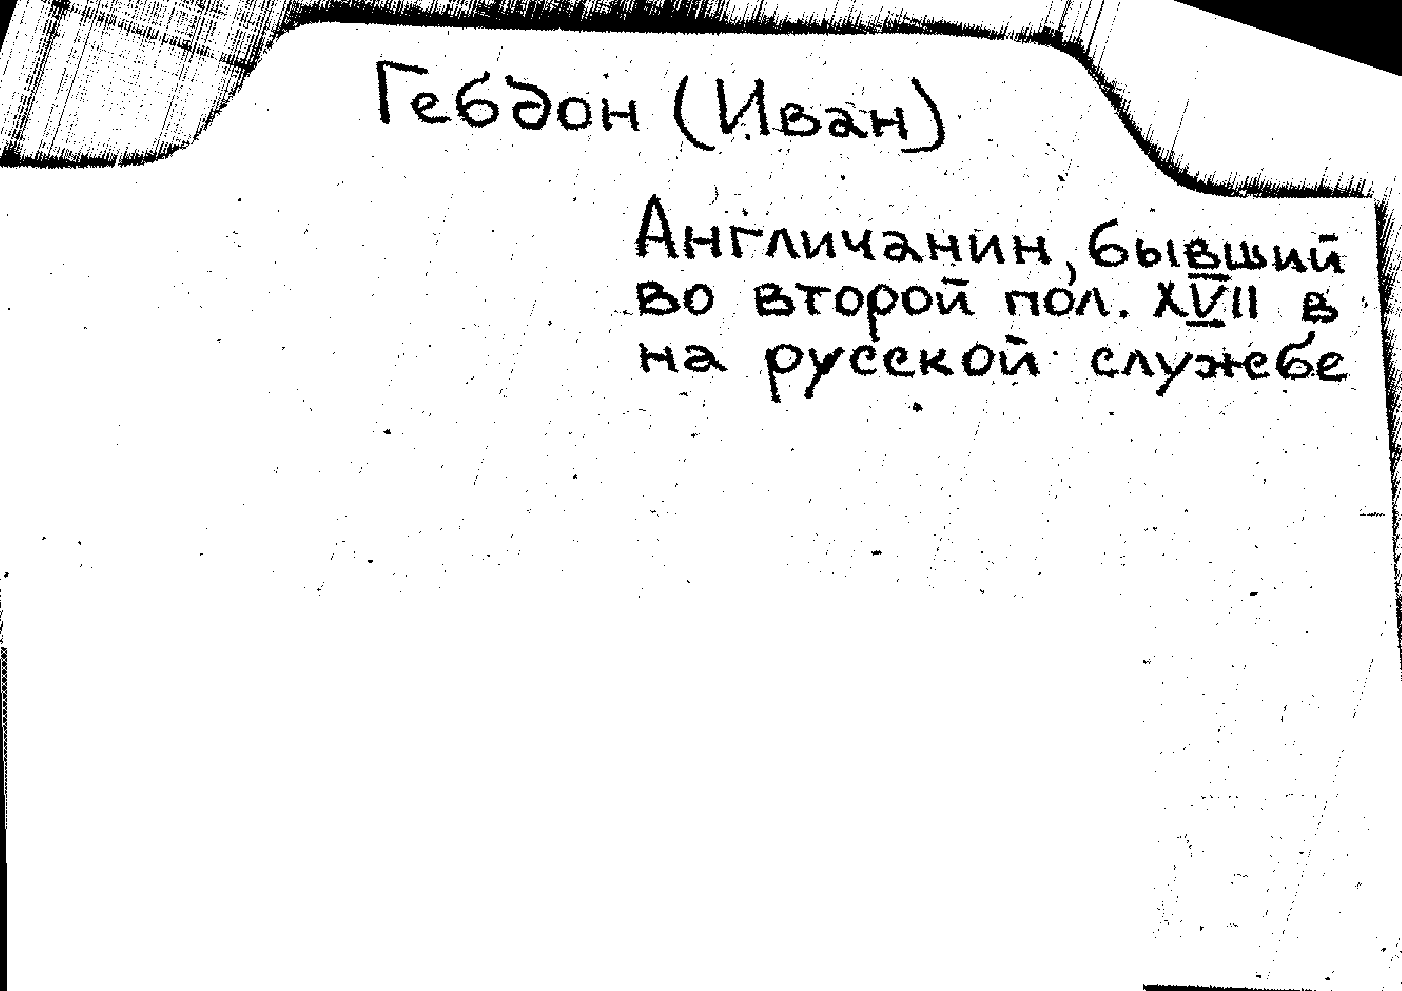 Гебдон (Иван)
Англичанин, бывший
во второй пол. XVII в
на русской службе